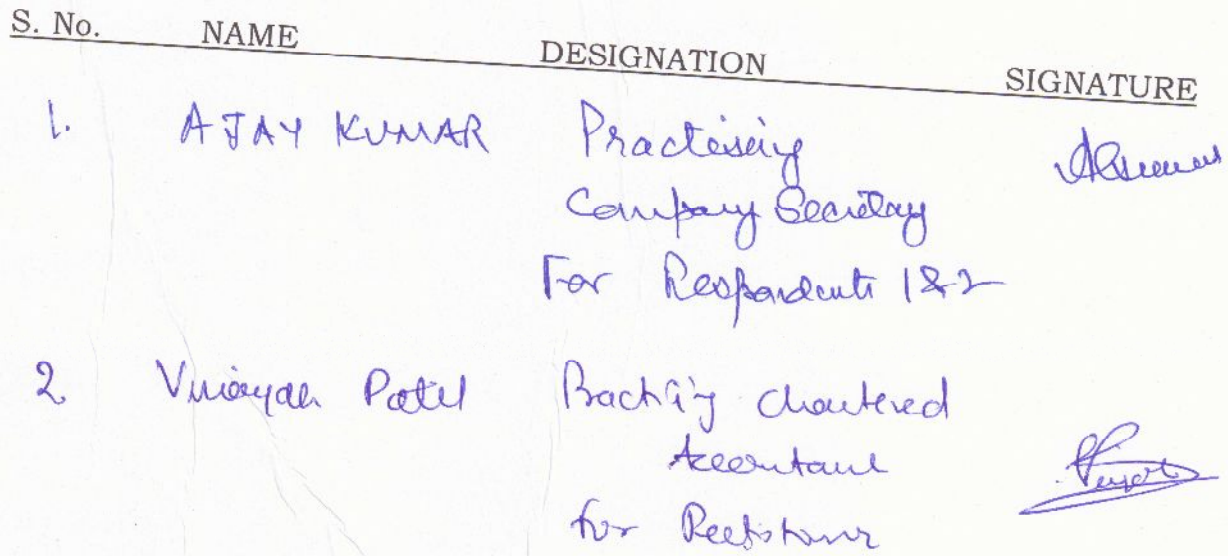 S. No. NAME DESIGNATION SIGNATURE
1. AJAY KUMAR Practising
Company Secretary
For Respondents 1&2
2 Patel Practicing Chartered
Accountant
for Petitioner